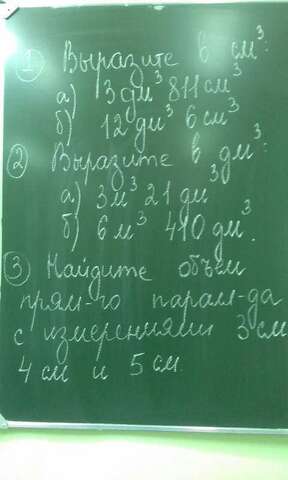 1 Выразите в см³:
а) 3 дм³ 811 см³
б) 12 дм³ 6 см³
2 Выразите в дм³:
а) 3 м³ 21 дм³
б) 6 м³ 410 дм³.
3 Найдите объем
прям-го парал-да
с измерениями 3 см
4 см и 5 см.